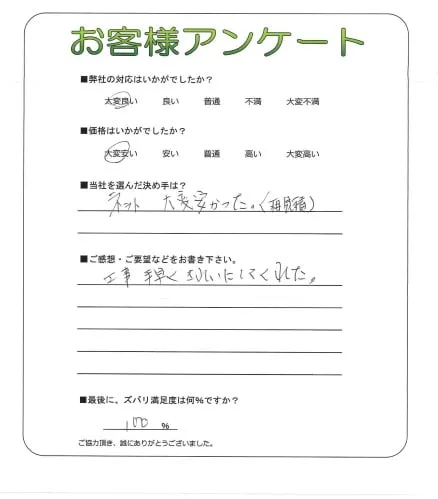 お客様アンケート
■弊社の対応はいかがでしたか？
太変良い 良い 普通 不満 大変不満
■価格はいかがでしたか？
大変安い 安い 普通 高い 大変高い
■当社を選んだ決め手は？
ネット 大変安かった。(再見積)
■ご感想・ご要望などをお書き下さい。
工事 手早く きれいにしてくれた。
■最後に、ズバリ満足度は何%ですか？
100 %
ご協力頂き、誠にありがとうございました。